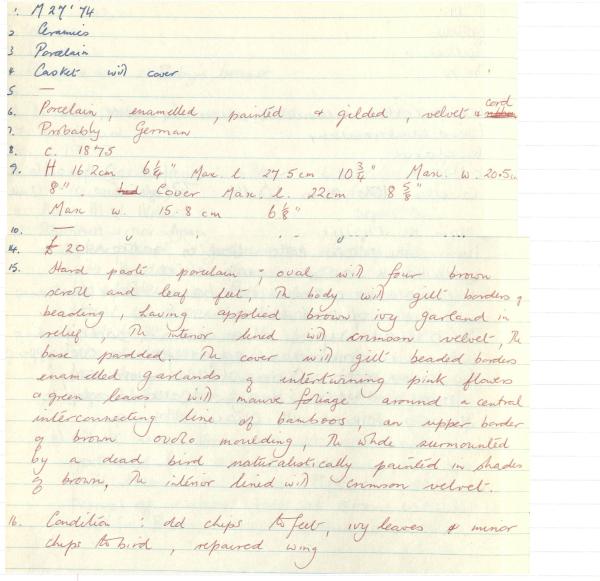 1. M 27' 74
2 Ceramics
3 Porcelain
4. Casket with cover
5 —
6. Porcelain, enamelled, painted & gilded, velvet & cord
7. Probably German
8. c. 1875
9. H 16.2cm 6 1/4" Max. l. 27.5cm 10 3/4" Max. w. 20.5cm
8" Cover Max. l. 22cm 8 5/8"
Max w. 15.8 cm 6 1/8"
10. —
14. £ 20
15. Hard paste porcelain; oval with four brown
scroll and leaf feet, the body with gilt borders of
beading, having applied brown ivy garland in
relief, the interior lined with crimson velvet, the
base padded. The cover with gilt beaded borders
enamelled garlands of intertwining pink flowers
& green leaves with mauve foliage around a central
interconnecting line of bamboos, an upper border
of brown ovolo moulding, the whole surmounted
by a dead bird naturalistically painted in shades
of brown, the interior lined with crimson velvet.
16. Condition: old chips to feet, ivy leaves & minor
chips to bird, repaired wing